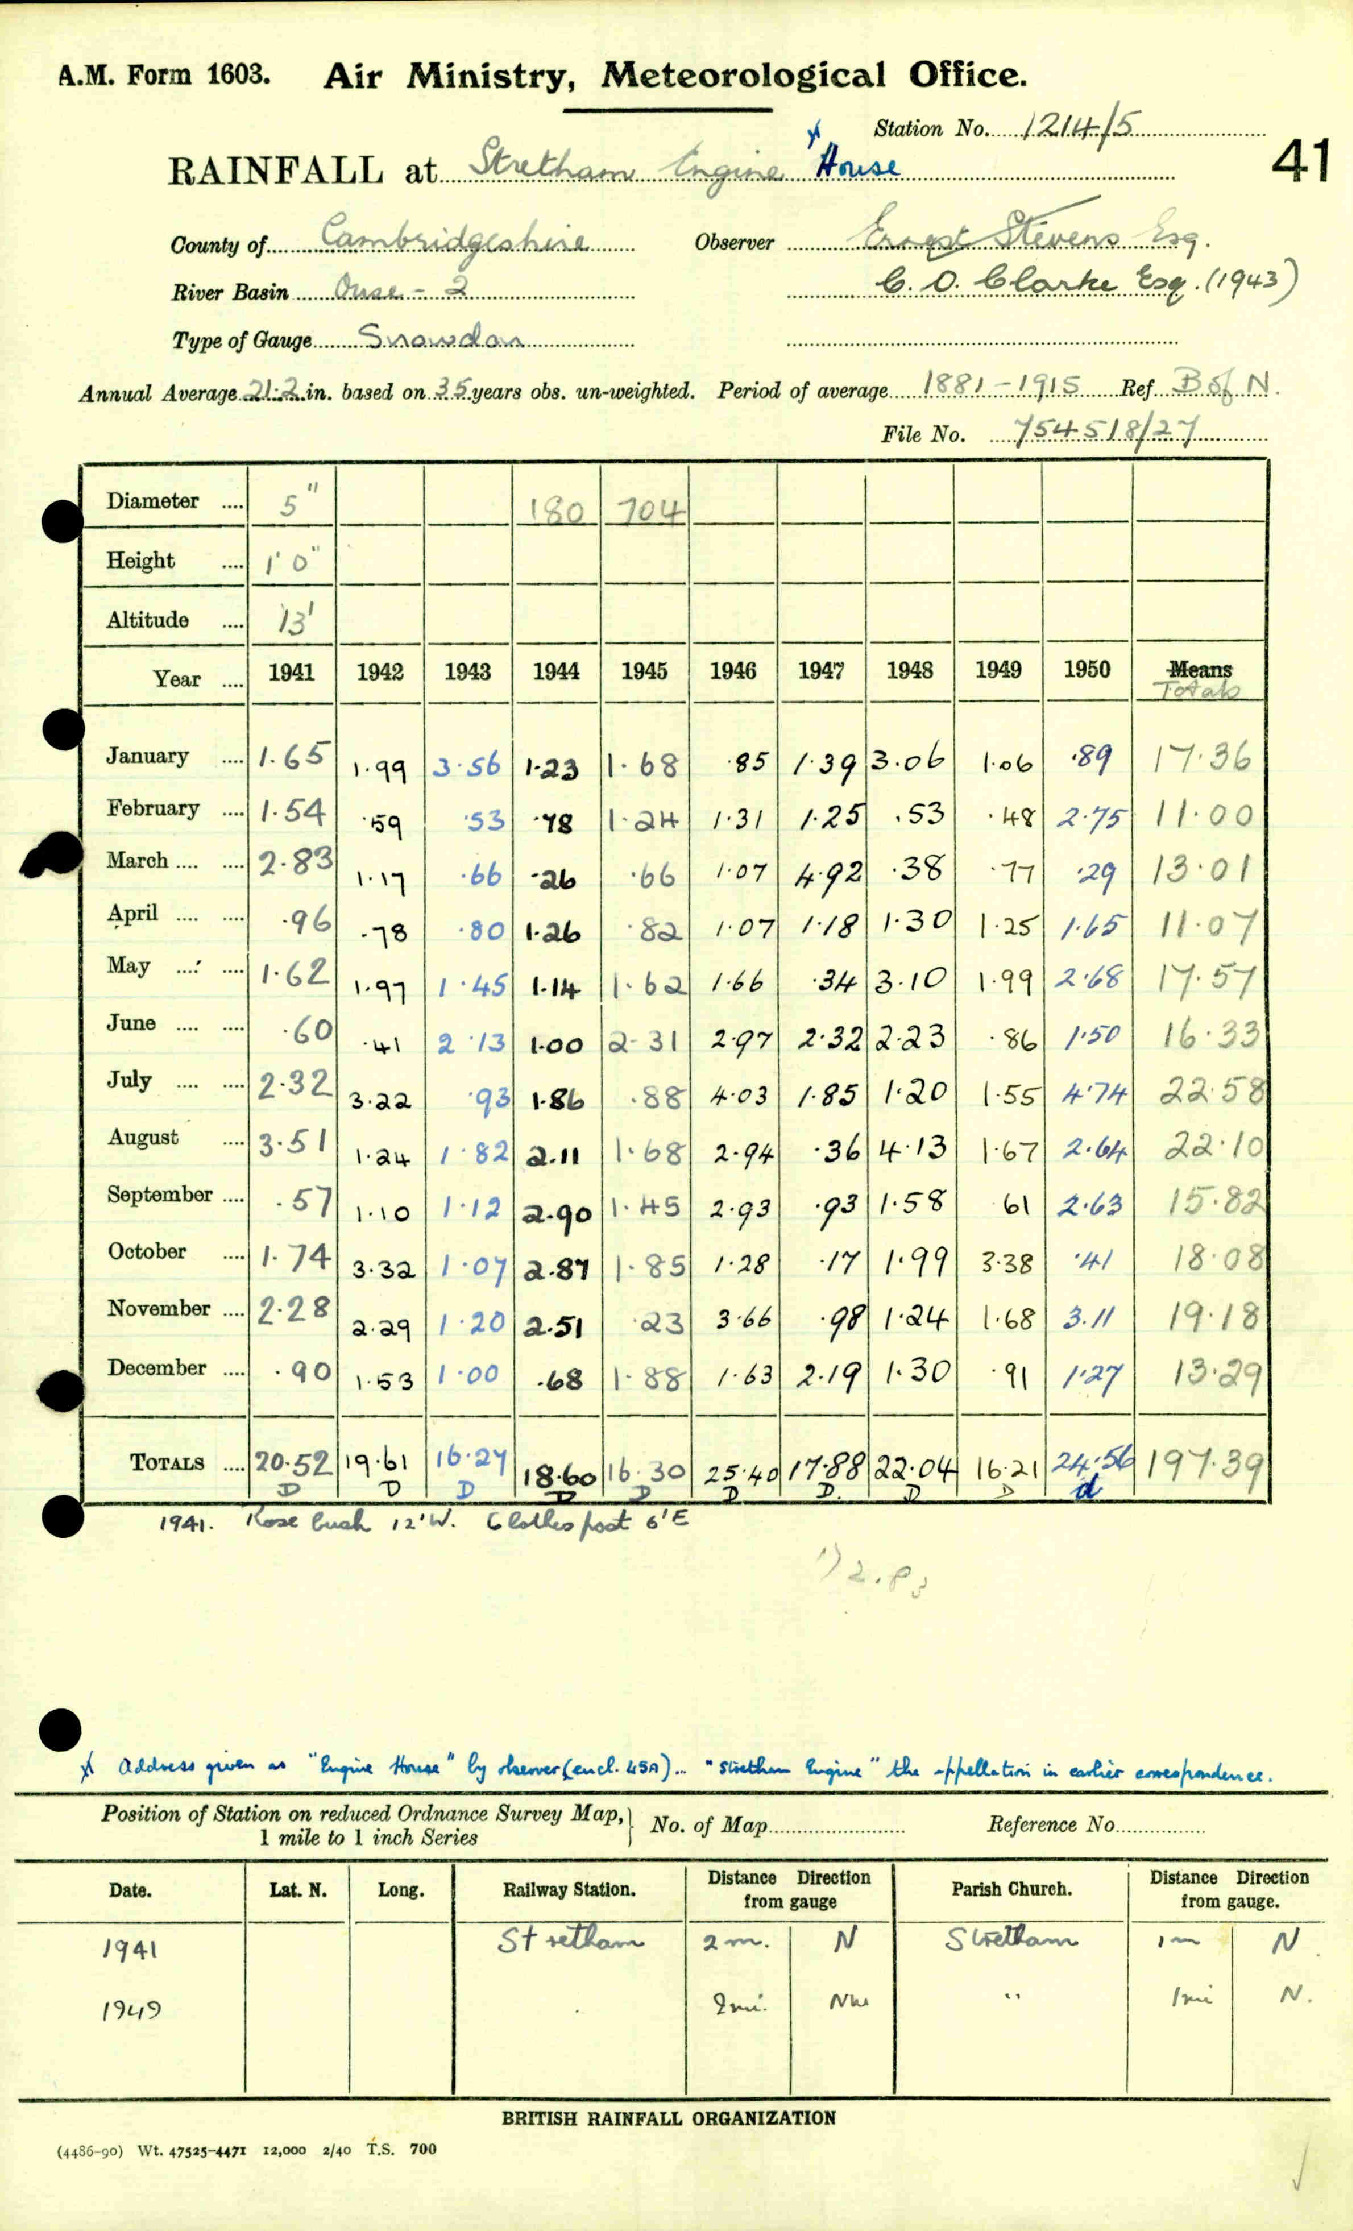 A.M. Form 1603. Air Ministry, Meteorological Office.
Station No. 1214/5
41
RAINFALL at Stretham Engine x House
County of Cambridgeshire Observer Ernest Stevens Esq.
River Basin Ouse - 2 C. O. Clarke Esq. (1943)
Type of Gauge Snowdon
Annual Average 21.2 in. based on 35 years obs. un-weighted. Period of average 1881-1915 Ref. B of N.
File No. 754518/27
Diameter .... 5" 180 704
Height .... 1' 0"
Altitude .... 13'
Year .... 1941 1942 1943 1944 1945 1946 1947 1948 1949 1950 Means
Totals
January .... 1.65 1.99 3.56 1.23 1.68 .85 1.39 3.06 1.06 .89 17.36
February .... 1.54 .59 .53 .78 1.24 1.31 1.25 .53 .48 2.75 11.00
March .... .... 2.83 1.17 .66 .26 .66 1.07 4.92 .38 .77 .29 13.01
April .... .... .96 .78 .80 1.26 .82 1.07 1.18 1.30 1.25 1.65 11.07
May .... .... 1.62 1.97 1.45 1.14 1.62 1.66 .34 3.10 1.99 2.68 17.57
June .... .... .60 .41 2.13 1.00 2.31 2.97 2.32 2.23 .86 1.50 16.33
July .... .... 2.32 3.22 .93 1.86 .88 4.03 1.85 1.20 1.55 4.74 22.58
August .... 3.51 1.24 1.82 2.11 1.68 2.94 .36 4.13 1.67 2.64 22.10
September .... .57 1.10 1.12 2.90 1.45 2.93 .93 1.58 61 2.63 15.82
October .... 1.74 3.32 1.07 2.87 1.85 1.28 .17 1.99 3.38 .41 18.08
November .... 2.28 2.29 1.20 2.51 .23 3.66 .98 1.24 1.68 3.11 19.18
December .... .90 1.53 1.00 .68 1.88 1.63 2.19 1.30 .91 1.27 13.29
TOTALS .... 20.52 19.61 16.27 18.60 16.30 25.40 17.88 22.04 16.21 24.56 197.39
D D D D D D D. D D d
1941. Rose bush 12'W. Clothes post 6'E
1) 2.83
x Address given as "Engine House" by observer (encl. 45A).. "Stretham Engine" the appellation in earlier correspondence.
Position of Station on reduced Ordnance Survey Map, } No. of Map Reference No.
1 mile to 1 inch Series
Date. Lat. N. Long. Railway Station. Distance Direction from gauge Parish Church. Distance Direction from gauge.
1941 Stretham 2 m. N Stretham 1m N
1949 2mi. NW " 1mi N.
BRITISH RAINFALL ORGANIZATION
(4486-90) Wt. 47525-4471 12,000 2/40 T.S. 700